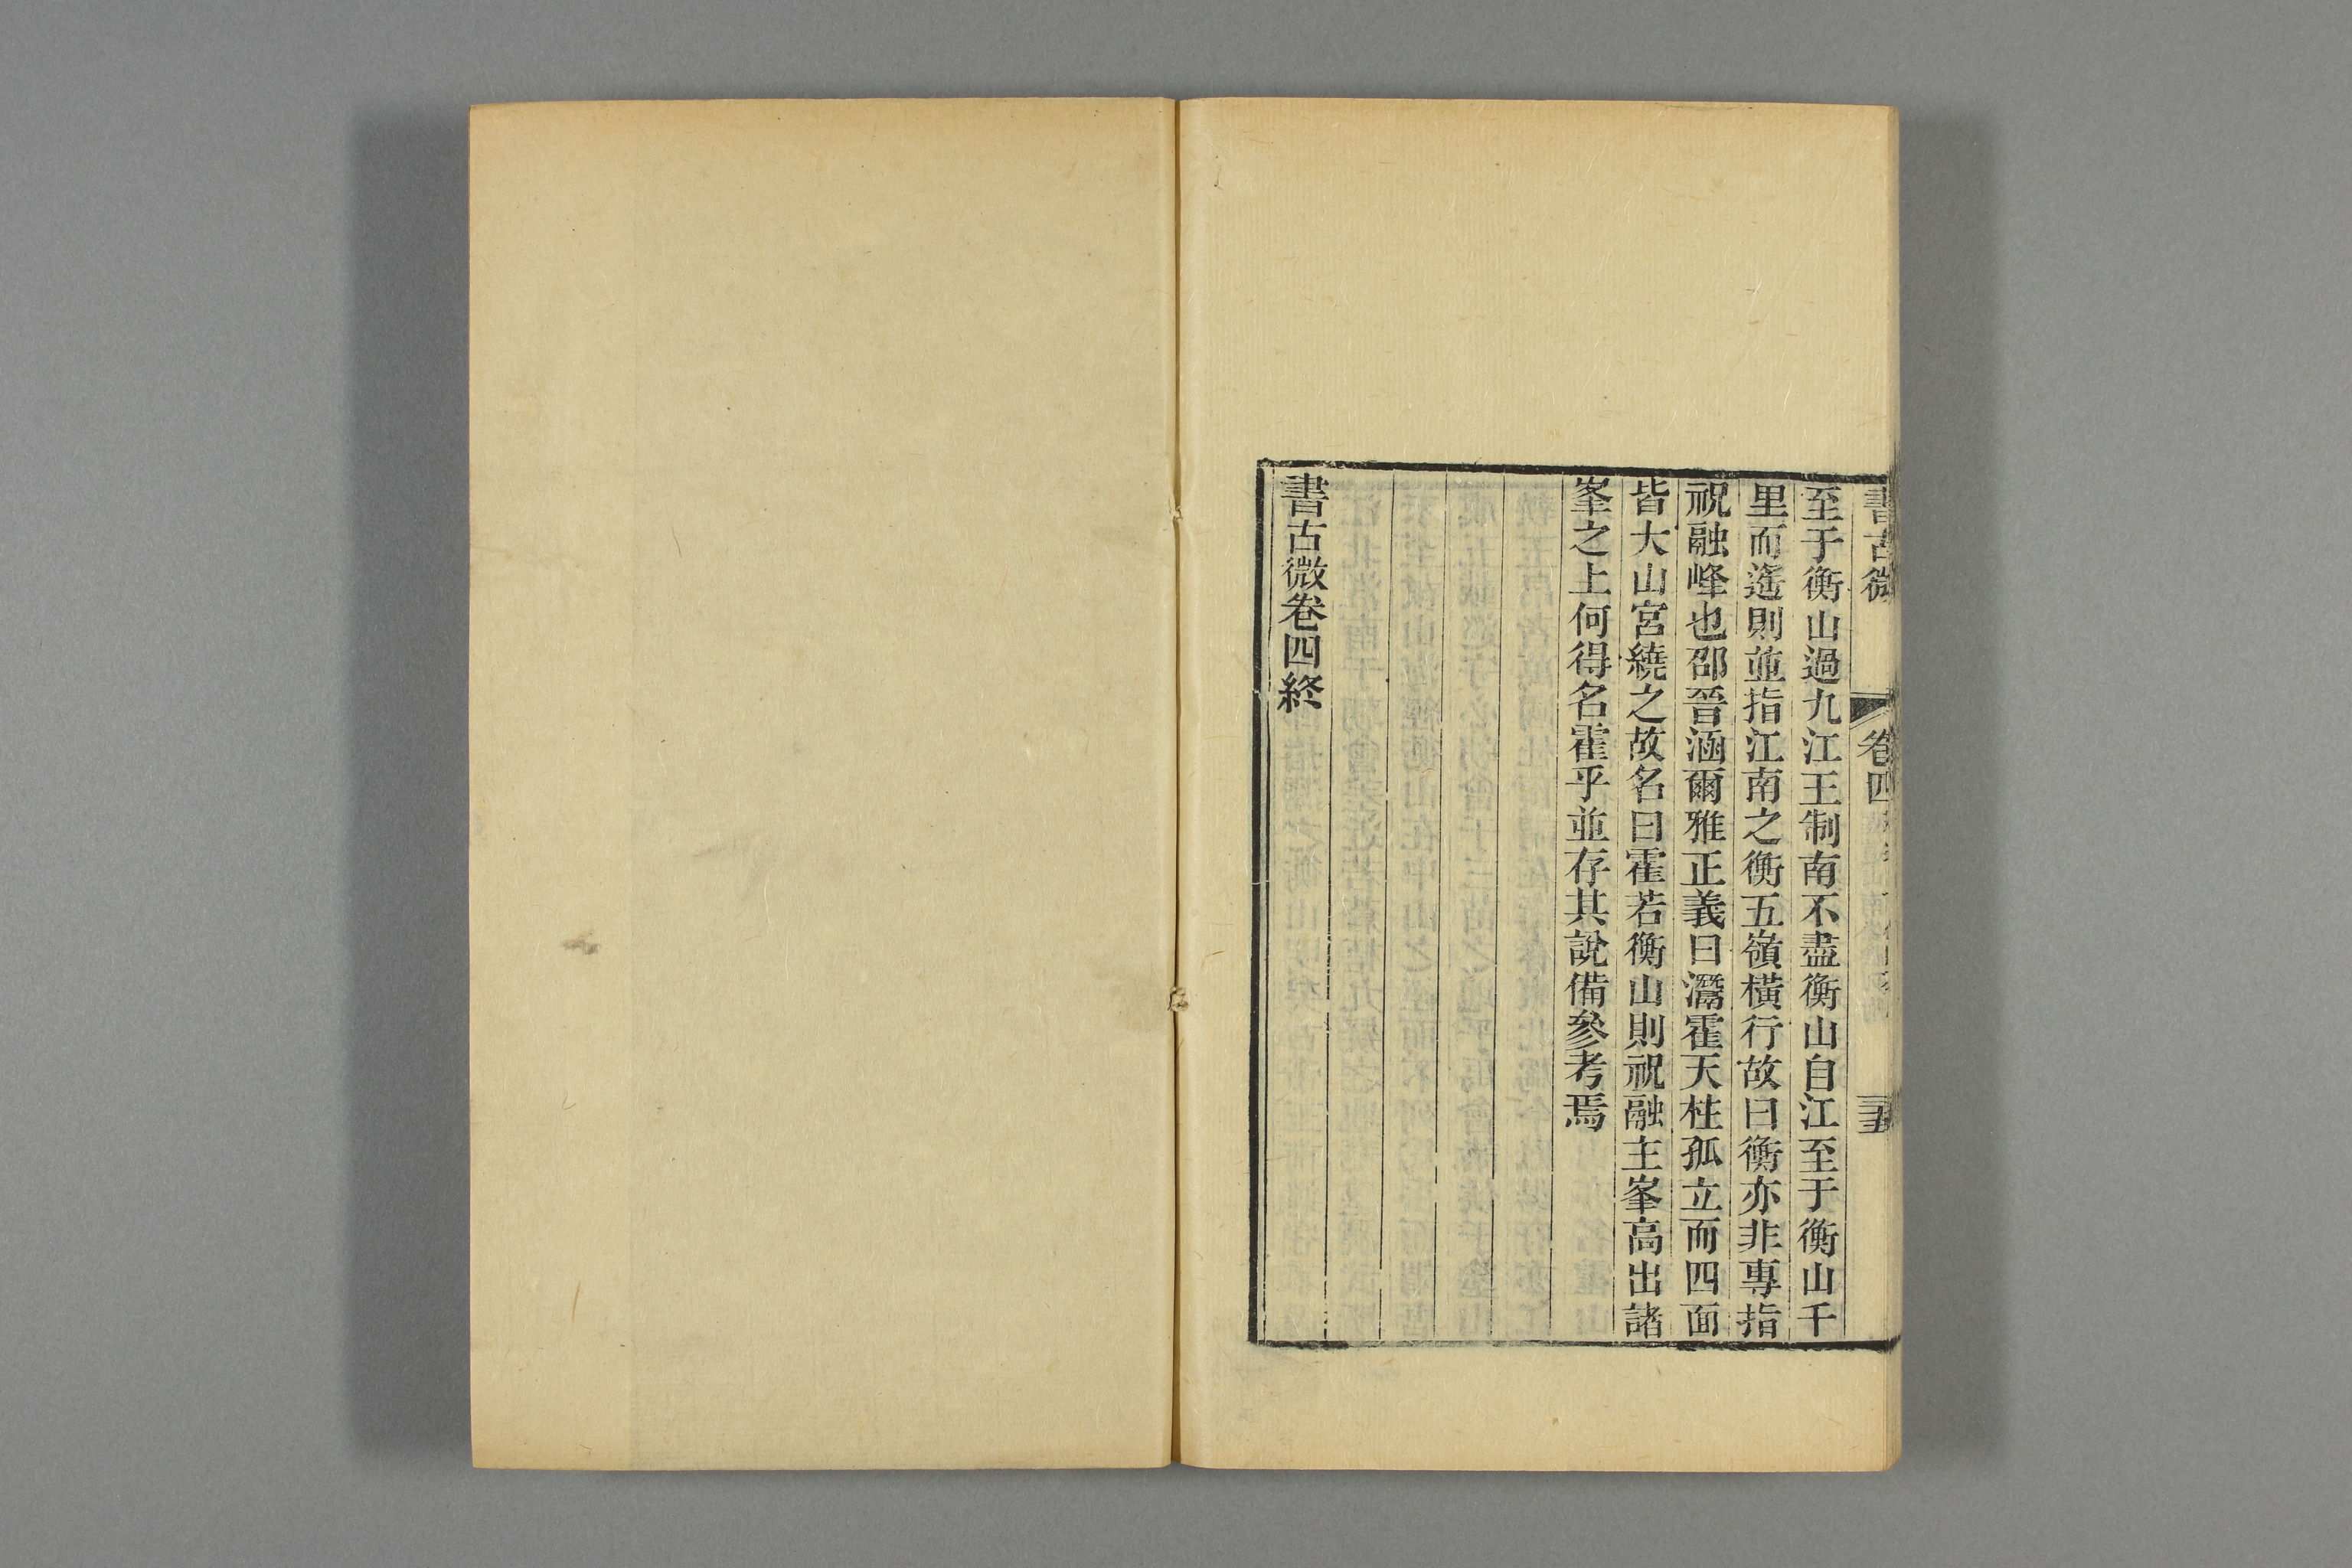 書古微
卷四
至于衡山過九江王制南不盡衡山自江至于衡山千
里而遙則並指江南之衡五嶺橫行故曰衡亦非專指
祝融峰也邵晉涵爾雅正義曰灊霍天柱孤立而四面
皆大山宮繞之故名曰霍若衡山則祝融主峯高出諸
峯之上何得名霍乎並存其說備參考焉
書古微卷四終